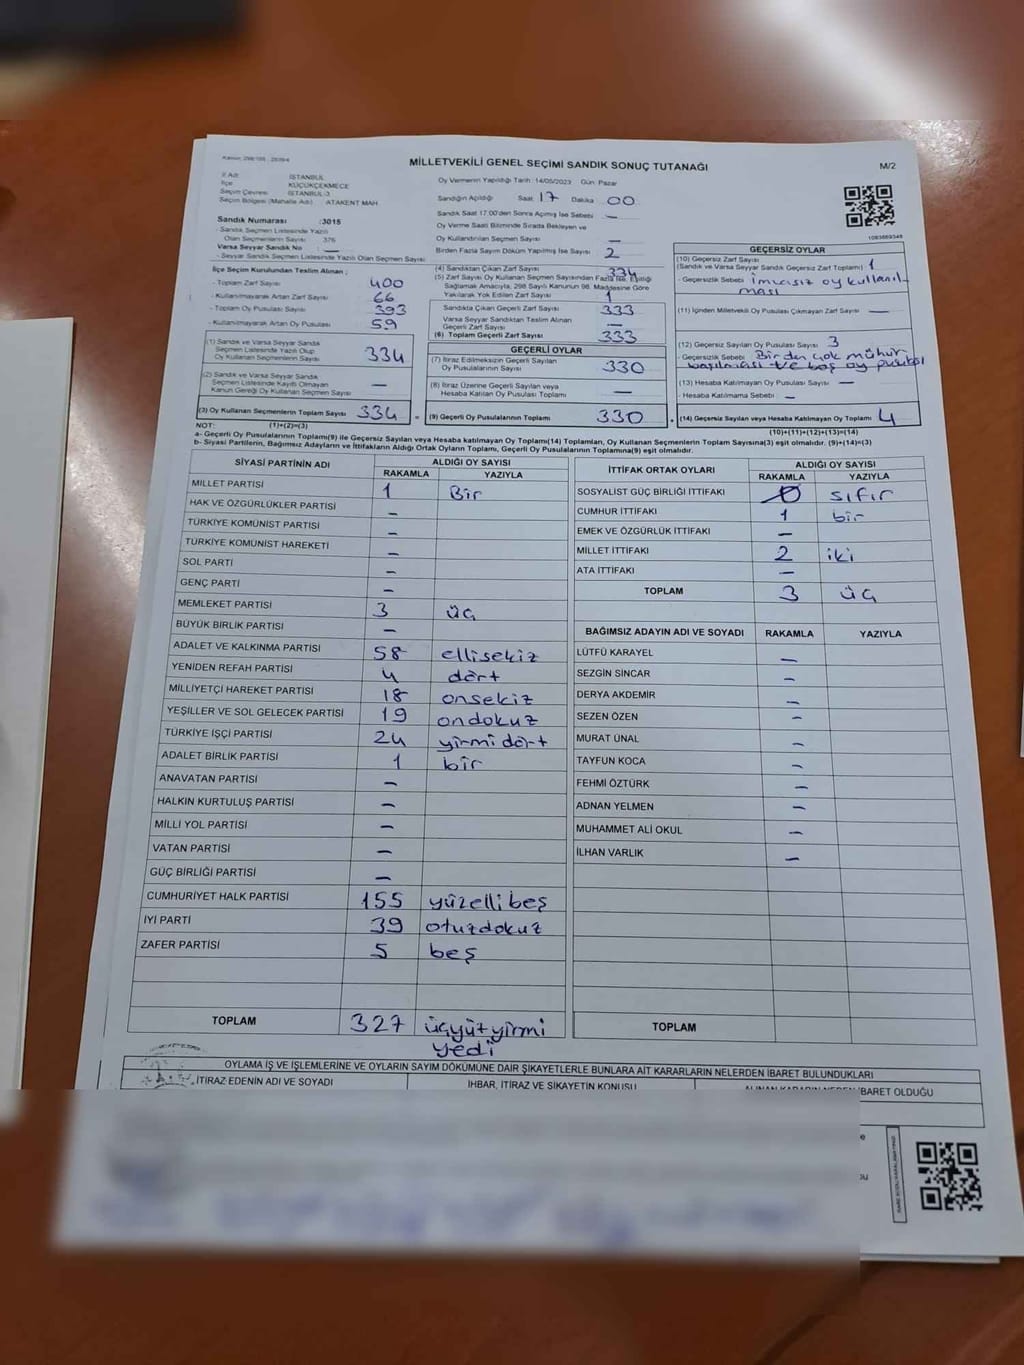 MİLLETVEKİLİ GENEL SEÇİMİ SANDIK SONUÇ TUTANAĞI
M/2
İl Adı : İSTANBUL
İlçe : KÜÇÜKÇEKMECE
Seçim Çevresi : İSTANBUL-3
Seçim Bölgesi (Mahalle Adı) : ATAKENT MAH.
Sandık Numarası :3015
- Sandık Seçmen Listesinde Yazılı
Olan Seçmenlerin Sayısı : 376
Varsa Seyyar Sandık No : —
- Seyyar Sandık Seçmen Listesinde Yazılı Olan Seçmen Sayısı
İlçe Seçim Kurulundan Teslim Alınan ;
- Toplam Zarf Sayısı 400
- Kullanılmayarak Artan Zarf Sayısı 66
- Toplam Oy Pusulası Sayısı 393
- Kullanılmayarak Artan Oy Pusulası 59
(1) Sandık ve Varsa Seyyar Sandık
Seçmen Listesinde Yazılı Olup
Oy Kullanan Seçmenlerin Sayısı 334
(2) Sandık ve Varsa Seyyar Sandık
Seçmen Listesinde Kayıtlı Olmayan
Kanun Gereği Oy Kullanan Seçmen Sayısı —
(3) Oy Kullanan Seçmenlerin Toplam Sayısı 334 =
Oy Vermenin Yapıldığı Tarih : 14/05/2023 Gün: Pazar
Sandığın Açıldığı Saat 17 Dakika 00
Sandık Saat 17.00'den Sonra Açılmış İse Sebebi : —
Oy Verme Saati Bitiminde Sırada Bekleyen ve
Oy Kullandırılan Seçmen Sayısı —
Birden Fazla Sayım Döküm Yapılmış İse Sayısı : 2
(4) Sandıktan Çıkan Zarf Sayısı 334
(5) Zarf Sayısı Oy Kullanan Seçmen Sayısından Fazla İse, Eşitliği
Sağlamak Amacıyla, 298 Sayılı Kanunun 98. Maddesine Göre
Yakılarak Yok Edilen Zarf Sayısı 1
Sandıkta Çıkan Geçerli Zarf Sayısı 333
Varsa Seyyar Sandıktan Teslim Alınan
Geçerli Zarf Sayısı —
(6) Toplam Geçerli Zarf Sayısı 333
GEÇERLİ OYLAR
(7) İtiraz Edilmeksizin Geçerli Sayılan
Oy Pusulalarının Sayısı 330
(8) İtiraz Üzerine Geçerli Sayılan veya
Hesaba Katılan Oy Pusulası Sayısı —
(9) Geçerli Oy Pusulalarının Toplamı 330 +
1083669348
GEÇERSİZ OYLAR
(10) Geçersiz Zarf Sayısı
(Sandık ve Varsa Seyyar Sandık Geçersiz Zarf Toplamı) 1
- Geçersizlik Sebebi : imzasız oy kullanıl-
ması
(11) İçinden Milletvekili Oy Pusulası Çıkmayan Zarf Sayısı —
(12) Geçersiz Sayılan Oy Pusulası Sayısı 3
- Geçersizlik Sebebi Birden çok mühür
basılması ve boş oy pusulası
(13) Hesaba Katılmayan Oy Pusulası Sayısı —
- Hesaba Katılmama Sebebi : —
(14) Geçersiz Sayılan veya Hesaba Katılmayan Oy Toplamı 4
NOT: (1)+(2)=(3)
(10)+(11)+(12)+(13)=(14)
a- Geçerli Oy Pusulalarının Toplamı(9) ile Geçersiz Sayılan veya Hesaba katılmayan Oy Toplamı(14) Toplamları, Oy Kullanan Seçmenlerin Toplam Sayısına(3) eşit olmalıdır. (9)+(14)=(3)
b- Siyasi Partilerin, Bağımsız Adayların ve İttifakların Aldığı Ortak Oyların Toplamı, Geçerli Oy Pusulalarının Toplamına(9) eşit olmalıdır.
SİYASİ PARTİNİN ADI ALDIĞI OY SAYISI
RAKAMLA YAZIYLA
MİLLET PARTİSİ 1 Bir
HAK VE ÖZGÜRLÜKLER PARTİSİ —
TÜRKİYE KOMÜNİST PARTİSİ —
TÜRKİYE KOMÜNİST HAREKETİ —
SOL PARTİ —
GENÇ PARTİ —
MEMLEKET PARTİSİ 3 üç
BÜYÜK BİRLİK PARTİSİ —
ADALET VE KALKINMA PARTİSİ 58 ellisekiz
YENİDEN REFAH PARTİSİ 4 dört
MİLLİYETÇİ HAREKET PARTİSİ 18 onsekiz
YEŞİLLER VE SOL GELECEK PARTİSİ 19 ondokuz
TÜRKİYE İŞÇİ PARTİSİ 24 yirmidört
ADALET BİRLİK PARTİSİ 1 bir
ANAVATAN PARTİSİ —
HALKIN KURTULUŞ PARTİSİ —
MİLLİ YOL PARTİSİ —
VATAN PARTİSİ —
GÜÇ BİRLİĞİ PARTİSİ —
CUMHURİYET HALK PARTİSİ 155 yüzellibeş
İYİ PARTİ 39 otuzdokuz
ZAFER PARTİSİ 5 beş
TOPLAM 327 üçyüzyirmi
yedi
İTTİFAK ORTAK OYLARI ALDIĞI OY SAYISI
RAKAMLA YAZIYLA
SOSYALİST GÜÇ BİRLİĞİ İTTİFAKI 0 sıfır
CUMHUR İTTİFAKI 1 bir
EMEK VE ÖZGÜRLÜK İTTİFAKI —
MİLLET İTTİFAKI 2 iki
ATA İTTİFAKI —
TOPLAM 3 üç
BAĞIMSIZ ADAYIN ADI VE SOYADI RAKAMLA YAZIYLA
LÜTFÜ KARAYEL —
SEZGİN SİNCAR —
DERYA AKDEMİR —
SEZEN ÖZEN —
MURAT ÜNAL —
TAYFUN KOCA —
FEHMİ ÖZTÜRK —
ADNAN YELMEN —
MUHAMMET ALİ OKUL —
İLHAN VARLIK —
TOPLAM
OYLAMA İŞ VE İŞLEMLERİNE VE OYLARIN SAYIM DÖKÜMÜNE DAİR ŞİKAYETLERLE BUNLARA AİT KARARLARIN NELERDEN İBARET BULUNDUKLARI
İTİRAZ EDENİN ADI VE SOYADI İHBAR, İTİRAZ VE ŞİKAYETİN KONUSU ALINAN KARARIN NEDEN İBARET OLDUĞU